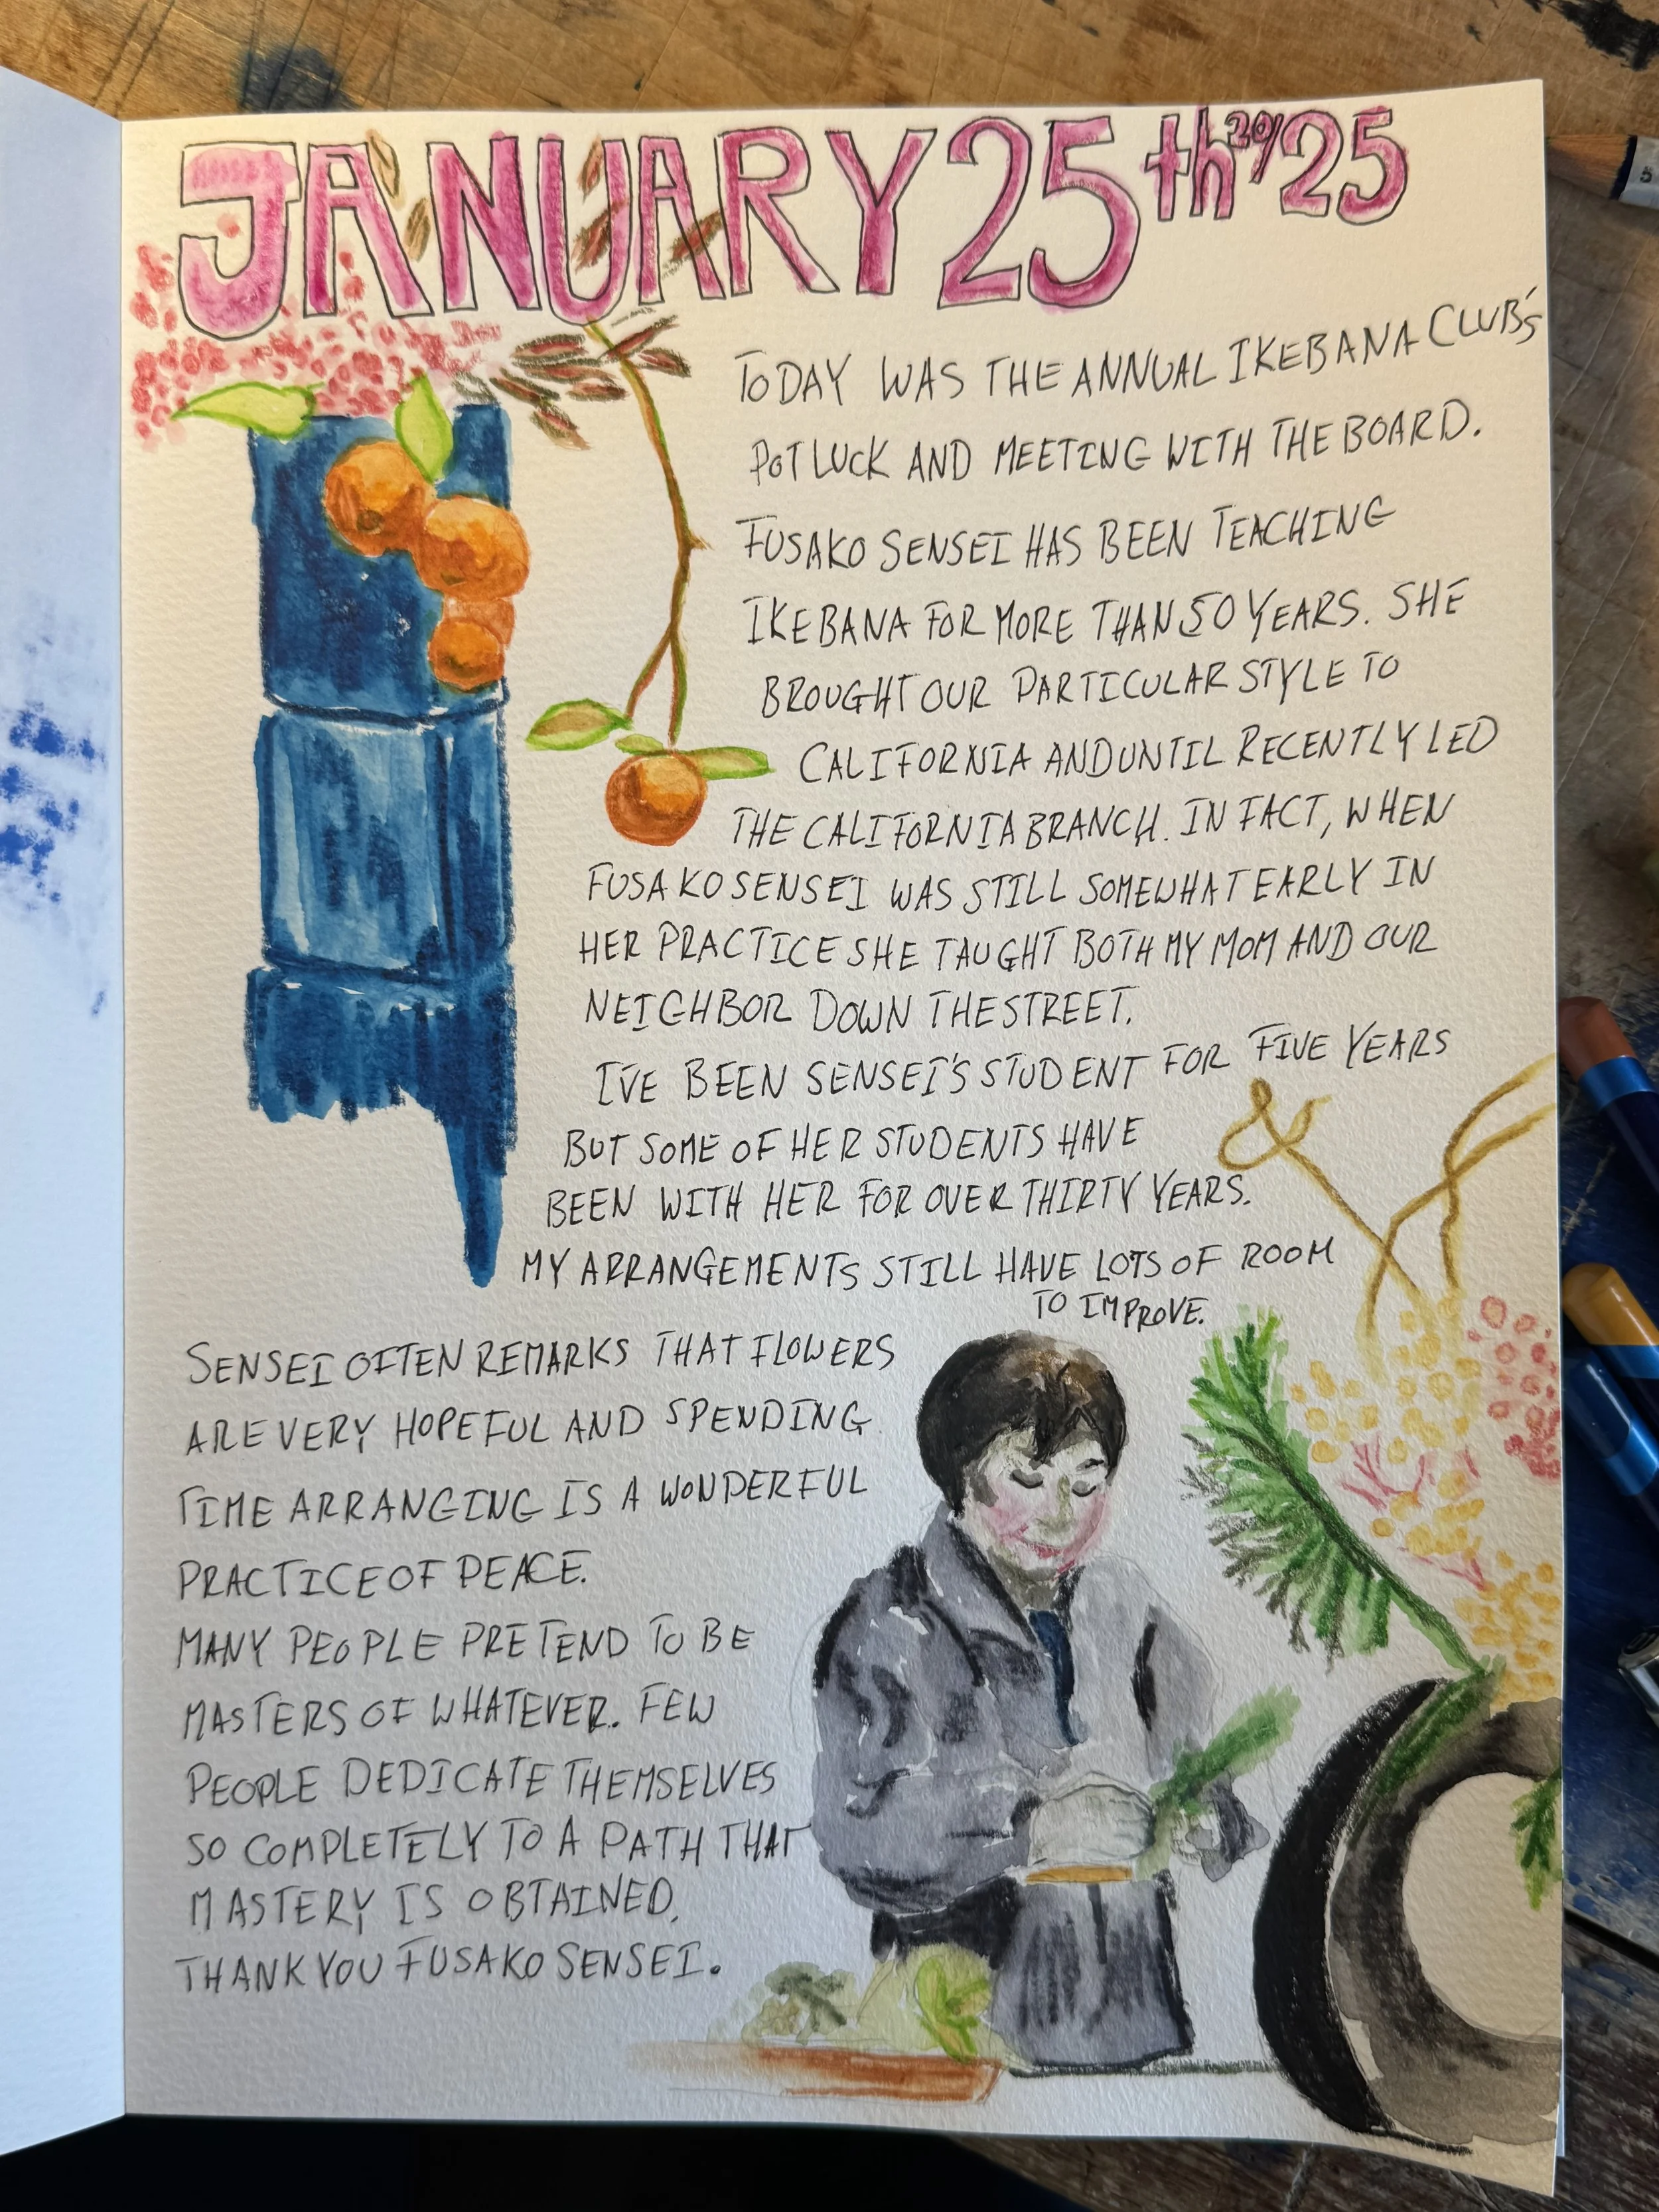 JANUARY 25th 20/25
TODAY WAS THE ANNUAL IKEBANA CLUB'S
POTLUCK AND MEETING WITH THE BOARD.
FUSAKO SENSEI HAS BEEN TEACHING
IKEBANA FOR MORE THAN 50 YEARS. SHE
BROUGHT OUR PARTICULAR STYLE TO
CALIFORNIA AND UNTIL RECENTLY LED
THE CALIFORNIA BRANCH. IN FACT, WHEN
FUSAKO SENSEI WAS STILL SOMEWHAT EARLY IN
HER PRACTICE SHE TAUGHT BOTH MY MOM AND OUR
NEIGHBOR DOWN THE STREET.
I'VE BEEN SENSEI'S STUDENT FOR FIVE YEARS
BUT SOME OF HER STUDENTS HAVE
BEEN WITH HER FOR OVER THIRTY YEARS.
MY ARRANGEMENTS STILL HAVE LOTS OF ROOM
TO IMPROVE.
SENSEI OFTEN REMARKS THAT FLOWERS
ARE VERY HOPEFUL AND SPENDING
TIME ARRANGING IS A WONDERFUL
PRACTICE OF PEACE.
MANY PEOPLE PRETEND TO BE
MASTERS OF WHATEVER. FEW
PEOPLE DEDICATE THEMSELVES
SO COMPLETELY TO A PATH THAT
MASTERY IS OBTAINED.
THANK YOU FUSAKO SENSEI.